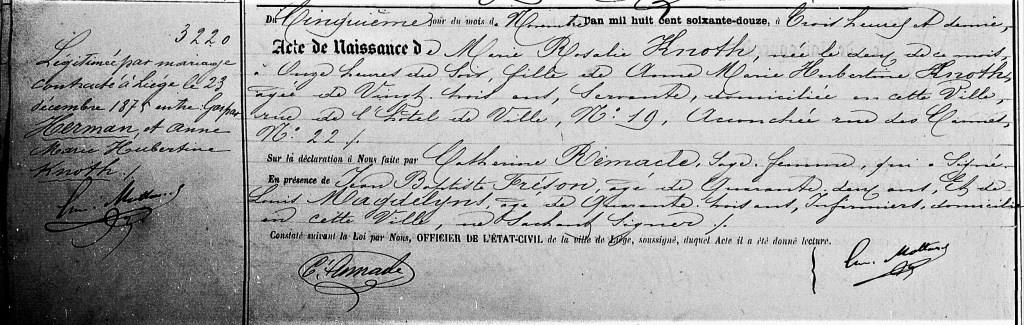 3220
Légitimée par mariage
contracté à Liége le 23
décembre 187 entre Gaspar
Herman, et Anne
Marie Houbertine
Knoth /.
Du Cinquième jour du mois de Novembre l'an mil huit cent soixante-douze, à Trois heures et demie,
Acte de Naissance de Marie Rosalie Knoth, née le deux de ce mois,
à Onze heures du soir, fille de Anne Marie Hubertine Knoth,
agée de Vingt-trois ans, Servante, domiciliée en cette Ville,
rue de l'Hôtel de Ville, N° 19, Accouchée rue des Carmes,
N° 22 /.
Sur la déclaration à Nous faite par Catherine Remacle, Sage-femme, qui a Signé
En présence de Jean Baptiste Fréson, agé de Quarante-deux ans, Et de
Louis Magdelyns, agé de Quarante-trois ans, Infirmiers, domiciliés
en cette Ville, ne Sachant Signer /.
Constaté suivant la Loi par Nous, OFFICIER DE L'ÉTAT-CIVIL de la ville de Liége, soussigné, duquel Acte il a été donné lecture.